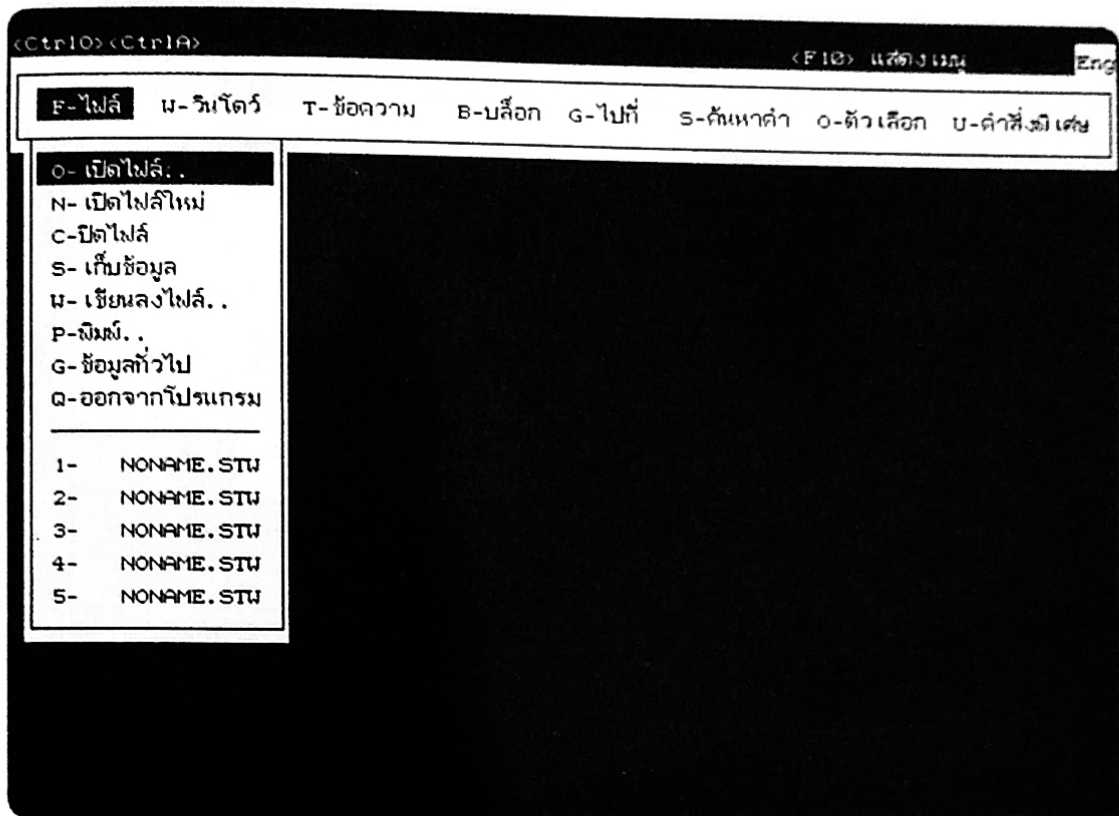 <CtrlO><CtrlA> <F10> แสดงเมนู Eng
F-ไฟล์ W-วินโดว์ T-ข้อความ B-บล็อก G-ไปที่ S-ค้นหาคำ O-ตัวเลือก U-คำสั่งพิเศษ
O- เปิดไฟล์..
N- เปิดไฟล์ใหม่
C-ปิดไฟล์
S- เก็บข้อมูล
W- เขียนลงไฟล์..
P-พิมพ์..
G-ข้อมูลทั่วไป
Q-ออกจากโปรแกรม
1- NONAME.STW
2- NONAME.STW
3- NONAME.STW
4- NONAME.STW
5- NONAME.STW